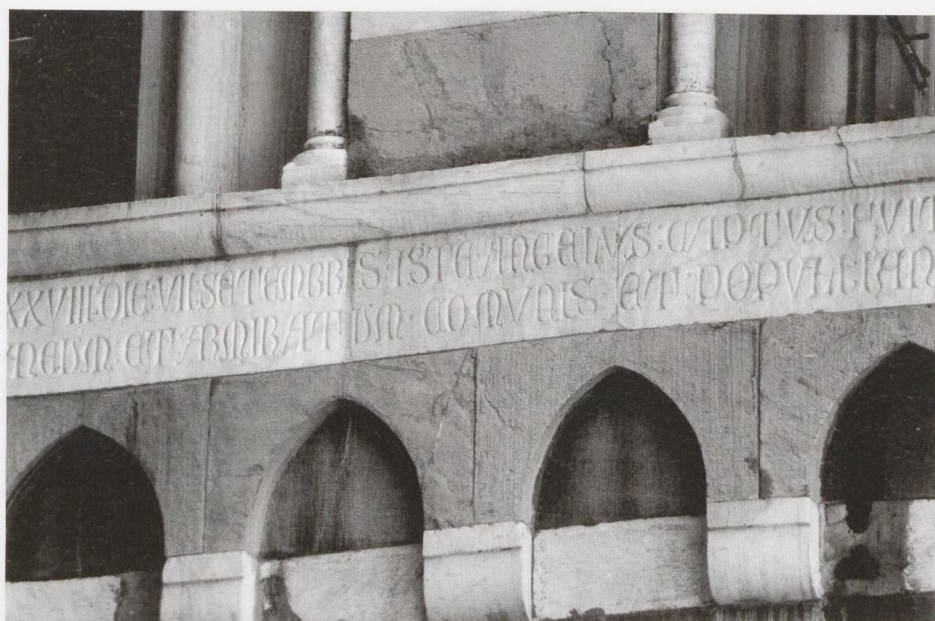 XXVIII:DIE:VII:SETEMBRIS:ISTE:ANGELVS:CAPTVS:FVIT
NEUM:ET:ARMIRATUM:COMVNIS:ET:POPVLI:IAN